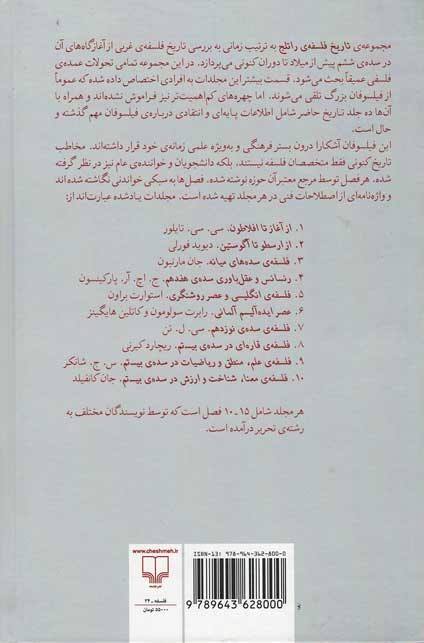 مجموعه‌ی تاریخ فلسفه‌ی راتلج به ترتیب زمانی به بررسی تاریخ فلسفه‌ی غربی از آغازگاه‌های آن
در سده‌ی ششم پیش از میلاد تا دوران کنونی می‌پردازد. در این مجموعه تمامی تحولات عمده‌ی
فلسفی عمیقاً بحث می‌شود. قسمت بیشتر این مجلدات به افرادی اختصاص داده شده که عموماً
از فیلسوفان بزرگ تلقی می‌شوند. اما چهره‌های کم‌اهمیت‌تر نیز فراموش نشده‌اند و همراه با
آن‌ها ده جلد تاریخ حاضر شامل اطلاعات پایه‌ای و انتقادی درباره‌ی فیلسوفان مهم گذشته و
حال است.
این فیلسوفان آشکارا درون بستر فرهنگی و به‌ویژه علمی زمانه‌ی خود قرار داشته‌اند. مخاطب
تاریخ کنونی فقط متخصصان فلسفه نیستند. بلکه دانشجویان و خواننده‌ی عام نیز در نظر گرفته
شده. هر فصل توسط مرجع معتبر آن حوزه نوشته شده. فصل‌ها به سبکی خواندنی نگاشته شده‌اند
و واژه‌نامه‌ای از اصطلاحات فنی در هر مجلد تهیه شده است. مجلدات یادشده عبارت‌اند از:
۱. از آغاز تا افلاطون. سی. سی. تایلور
۲. از ارسطو تا آگوستین. دیوید فورلی
۳. فلسفه‌ی سده‌های میانه. جان مارنبون
۴. رنسانس و عقل‌باوری سده‌ی هفدهم. ج. اچ. آر. پارکینسون
۵. فلسفه‌ی انگلیسی و عصر روشنگری. استوارت براون
۶. عصر ایده‌آلیسم آلمانی. رابرت سولومون و کاتلین هایگینز
۷. فلسفه‌ی سده‌ی نوزدهم. سی. ل. تن
۸. فلسفه‌ی قاره‌ای در سده‌ی بیستم. ریچارد کیرنی
۹. فلسفه‌ی علم، منطق و ریاضیات در سده‌ی بیستم. س. ج. شانکر
۱۰. فلسفه‌ی معنا، شناخت و ارزش در سده‌ی بیستم. جان کانفیلد
هر مجلد شامل ۱۵ـ۱۰ فصل است که توسط نویسندگان مختلف به
رشته‌ی تحریر درآمده است.
www.cheshmeh.ir
فلسفه ـ ۲۴
۵۵۰۰۰ تومان
ISBN-13: 978-964-362-800-0
9 789643 628000